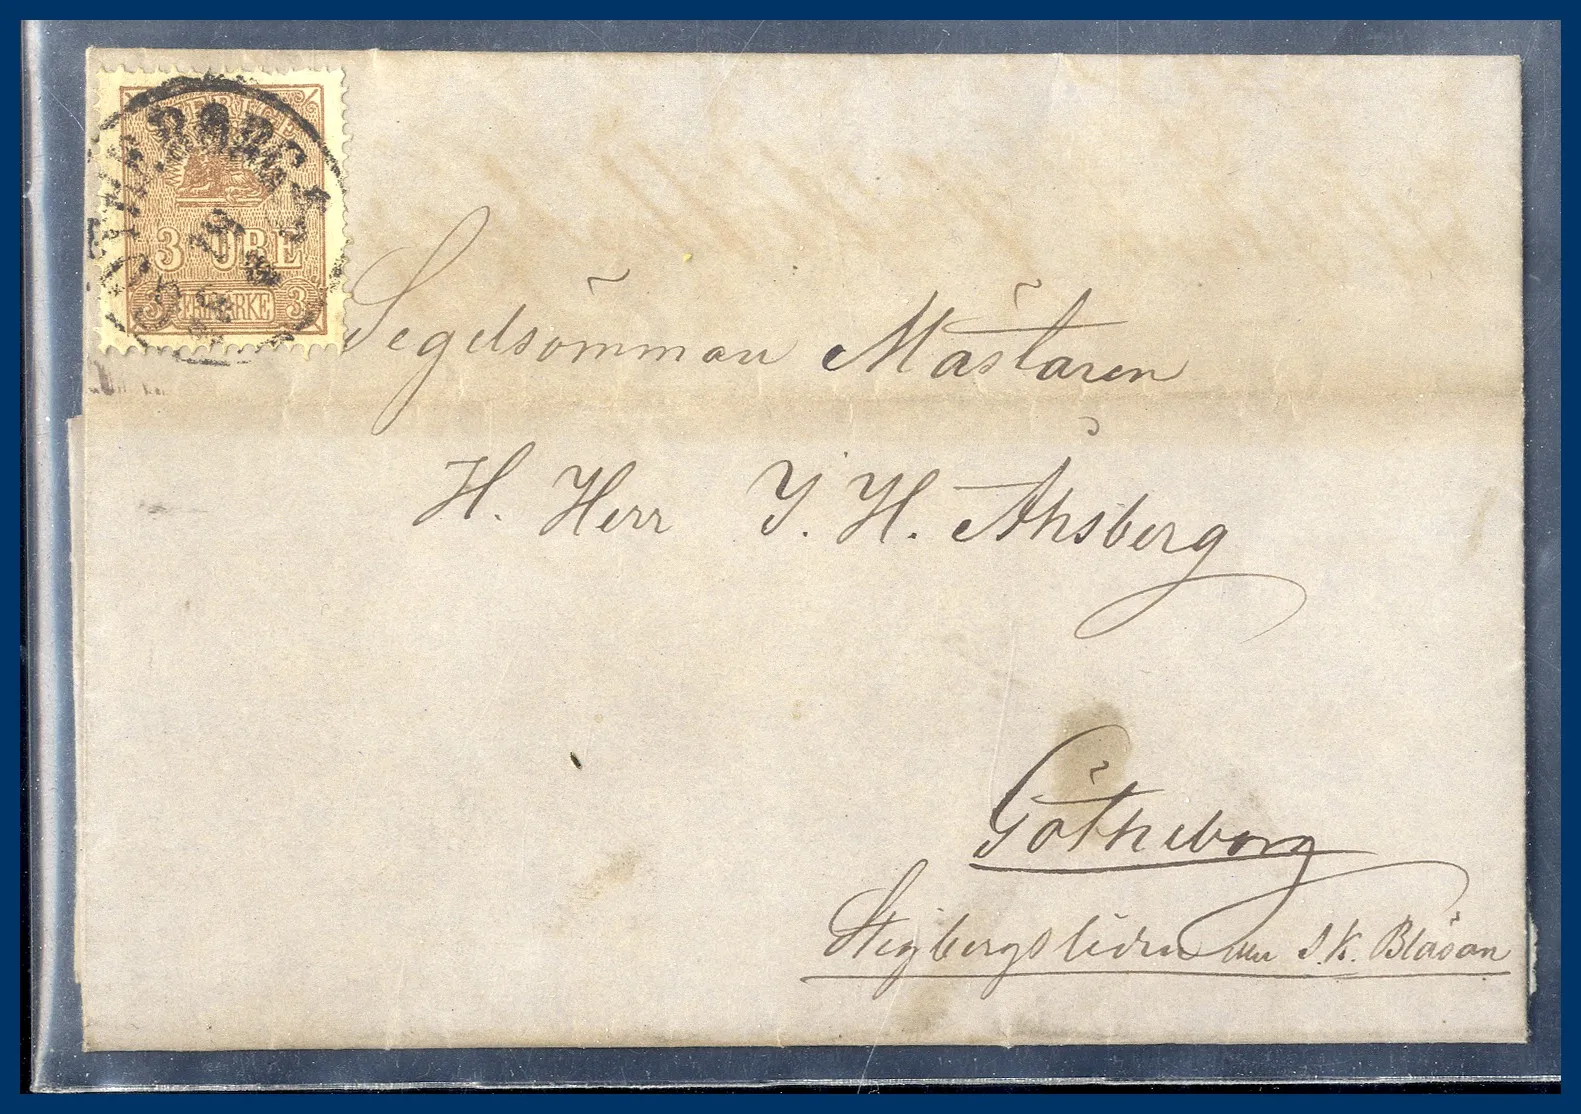 SVERIGE
3 ÖRE
3 FRIMARKE 3
GÖTHEBORG
Segelsömman Mästaren
H. Herr J. H. Åhsberg
Götheborg
Stigbergsliden S. K. Blåsan